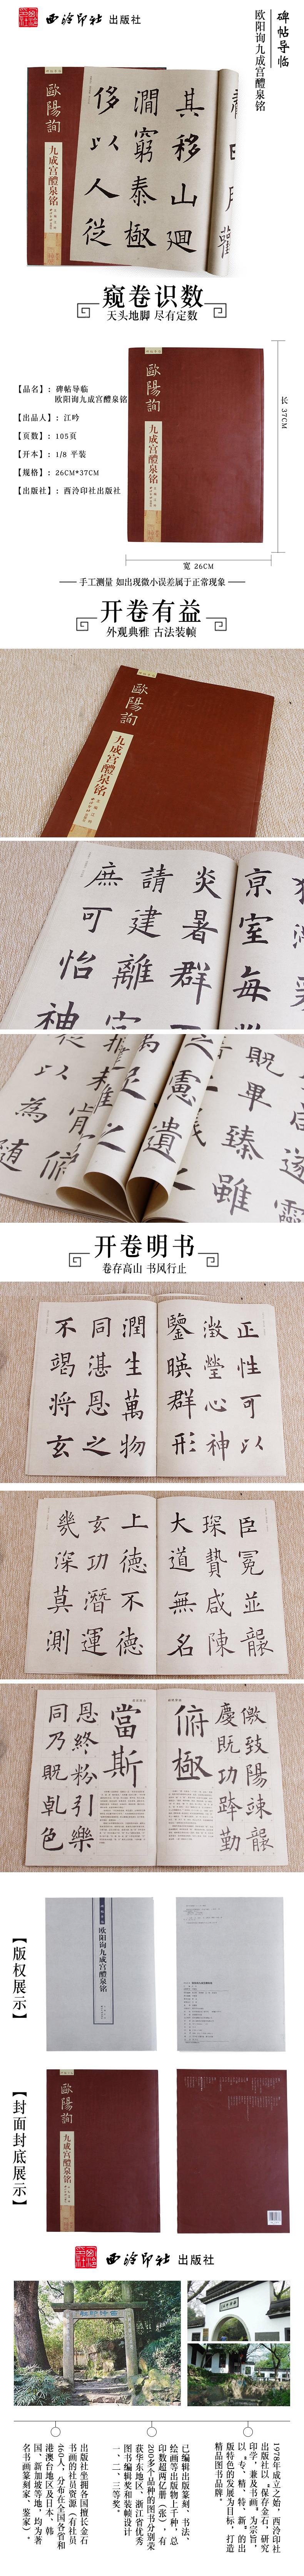 西泠印社 出版社
碑帖导临
欧阳询九成宫醴泉铭
歐陽詢
九成宫醴泉铭
其移山迴
澗窮泰極
侈以人從
窥卷识数
天头地脚 尽有定数
【品名】：碑帖导临
欧阳询九成宫醴泉铭
【出品人】：江吟
【页数】：105页
【开本】：1/8 平装
【规格】：26CM*37CM
【出版社】：西泠印社出版社
歐陽詢
九成宫醴泉铭
长 37CM
宽 26CM
手工测量 如出现微小误差属于正常现象
开卷有益
外观典雅 古法装帧
歐陽詢
九成宫醴泉铭
京室每
炎暑群
請建離
庶可怡神
既畢臻雖
遺
開卷明书
卷存高山 书风行止
正性可以
澂瑩心神
鑒暎群形
潤生萬物
同湛恩之
不竭将玄
臣冕並龍
琛贄咸陳
大道無名
上德不德
玄功潛運
幾深莫測
儆豉陽竦龍
慶既功跸勤
俯極
當斯
恩終粉引樂
同乃既乹色
【版权展示】
欧阳询九成宫醴泉铭
【封面封底展示】
歐陽詢
九成宫醴泉铭
西泠印社 出版社
1978年成立之始，西泠印社
出版社以“保存金石，研究
印学，兼及书画”为宗旨，
以“专、精、特、新”的出
版特色的发展为目标，打造
精品图书品牌。
已编辑出版篆刻、书法、
绘画等出版物上千种，总
印数超两亿册（张），有
200多个品种的图书分别荣
获华东地区、浙江省优秀
图书编辑奖和装帧设计
一、二、三等奖。
出版社坐拥各国擅长金石
书画的社员资源（有社员
460人，分布在全国各省和
港澳台地区及日本、韩
国、新加坡等地，均为著
名书画篆刻家、鉴家）。